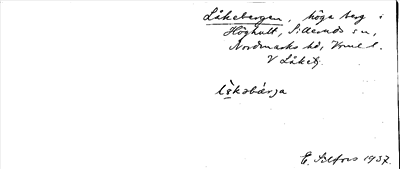 Låkebergen, höga berg i
Höghult, Silleruds sn,
Nordmarks hd, Vrml l.
V Låkebg.
lå̀kəbæ̀rja
E. Alfors 1937.